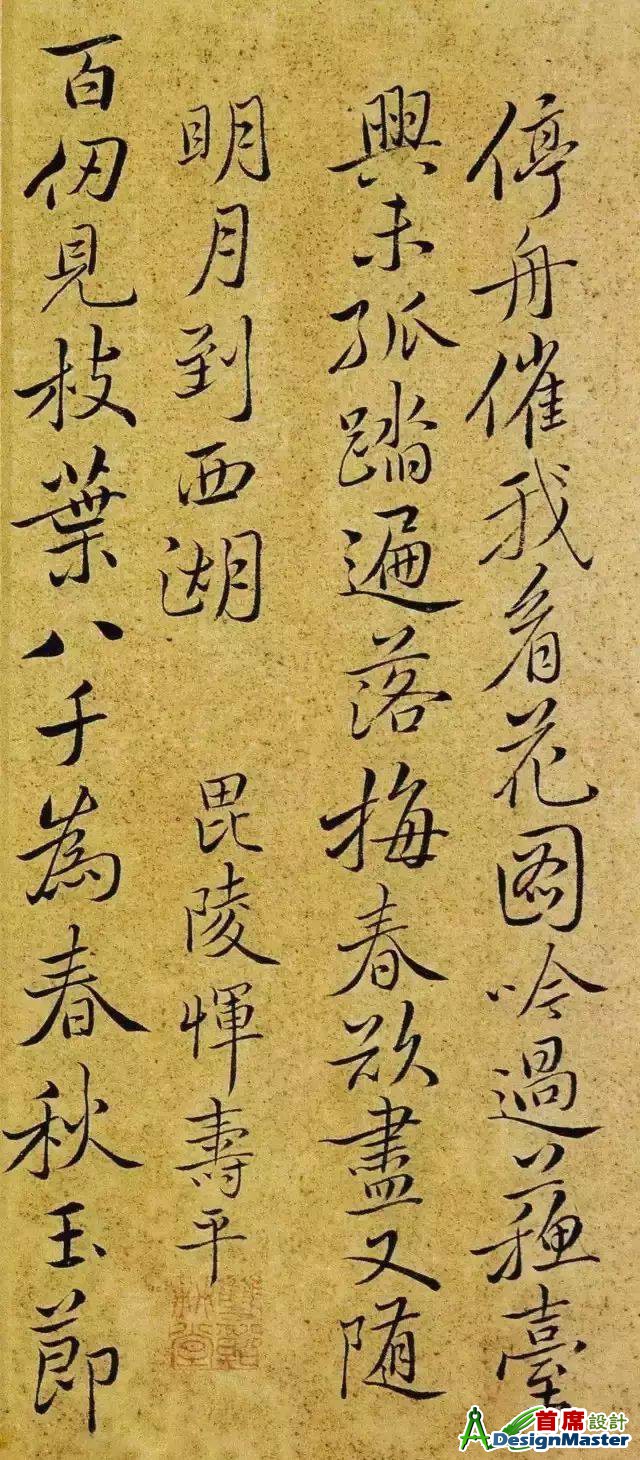 停舟催我看花圖吟過蘓臺
興未孤踏遍落梅春欲盡又随
明月到西湖
毘陵惲壽平
百仞見枝葉八千為春秋玉節
首席設計
DesignMaster